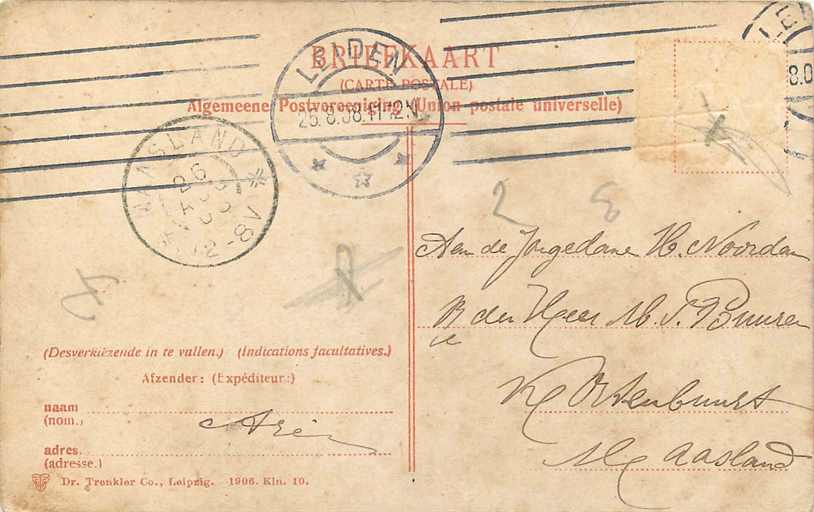 BRIEFKAART
(CARTE POSTALE)
Algemeene Postvereeniging (Union postale universelle)
LEIDEN
25.8.08.11-12.V.
MAASLAND
26
2 8
Aan de Jongedame H. Noordam
den Heer M. v. Buuren
Kortenbuurt
Maasland
(Desverkiezende in te vullen.) (Indications facultatives.)
Afzender: (Expéditeur:)
naam
(nom.)
Arie
adres.
(adresse.)
Dr. Trenkler Co., Leipzig. 1906. Kln. 10.